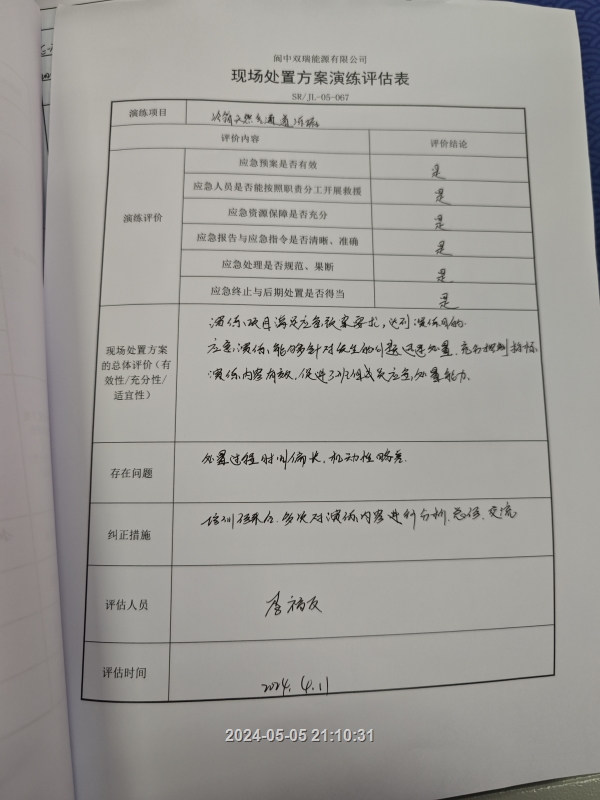 阆中双瑞能源有限公司
现场处置方案演练评估表
SR/JL-05-067
演练项目
评价内容 评价结论
演练评价
应急预案是否有效 是
应急人员是否能按照职责分工开展救援 是
应急资源保障是否充分 是
应急报告与应急指令是否清晰、准确 是
应急处理是否规范、果断 是
应急终止与后期处置是否得当 是
现场处置方案的总体评价（有效性/充分性/适宜性）
演练项目满足应急预案要求，达到演练目的
应急演练，能够针对发生的问题迅速处置，充分
演练内容有效，促进了班组成员应急处置能力.
存在问题 处置过程时间偏长，机动性略差.
纠正措施 培训结束后，多次对演练内容进行分析、总结、交流
评估人员
评估时间 2024.4.11
2024-05-05 21:10:31